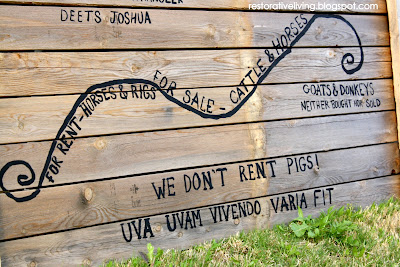 restorativeliving.blogspot.com
DEETS JOSHUA
FOR RENT-HORSES & RIGS
FOR SALE - CATTLE & HORSES
GOATS & DONKEYS
NEITHER BOUGHT NOR SOLD
WE DON'T RENT PIGS!
UVA UVAM VIVENDO VARIA FIT